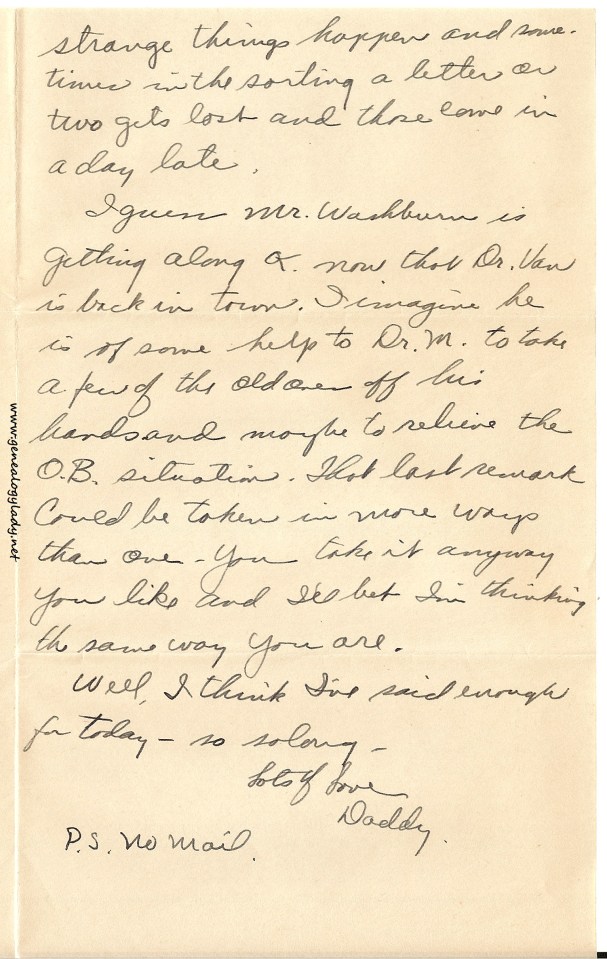 strange things happen and some-
times in the sorting a letter or
two gets lost and those come in
a day late.
I guess Mr. Washburn is
getting along O.K. now that Dr. Van
is back in town. I imagine he
is of some help to Dr. M. to take
a few of the old ones off his
hands and maybe to relieve the
O.B. situation. That last remark
could be taken in more ways
than one - You take it anyway
you like and I'll bet I'm thinking
the same way you are.
Well, I think I've said enough
for today - so solong -
Lots of Love
Daddy.
P.S. No Mail.
www.genealogylady.net